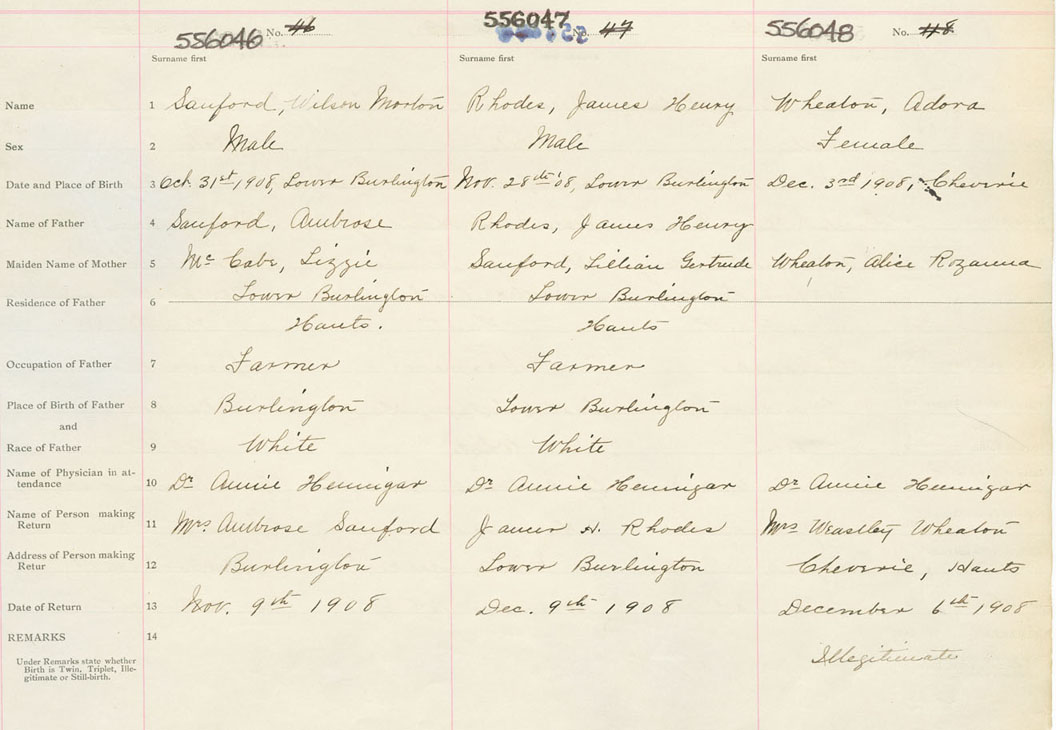 556046 No. 46 556047 No. 47 556048 No. 48
Surname first Surname first Surname first
Name 1 Sanford, Wilson Morton Rhodes, James Henry Wheaton, Adora
Sex 2 Male Male Female
Date and Place of Birth 3 Oct. 31st 1908, Lower Burlington Nov. 28th '08, Lower Burlington Dec. 3rd 1908, Cheverie
Name of Father 4 Sanford, Ambrose Rhodes, James Henry
Maiden Name of Mother 5 Mc Cabe, Lizzie Sanford, Lillian Gertrude Wheaton, Alice Rozanna
Residence of Father 6 Lower Burlington Lower Burlington
Hants. Hants
Occupation of Father 7 Farmer Farmer
Place of Birth of Father 8 Burlington Lower Burlington
and
Race of Father 9 White White
Name of Physician in at-
tendance 10 Dr Annie Hennigar Dr Annie Hennigar Dr Annie Hennigar
Name of Person making
Return 11 Mrs Ambrose Sanford James H. Rhodes Mrs Weastley Wheaton
Address of Person making
Retur 12 Burlington Lower Burlington Cheverie, Hants
Date of Return 13 Nov. 9th 1908 Dec. 9th 1908 December 6th 1908
REMARKS 14
Under Remarks state whether
Birth is Twin, Triplet, Ille-
gitimate or Still-birth.
Illegitimate